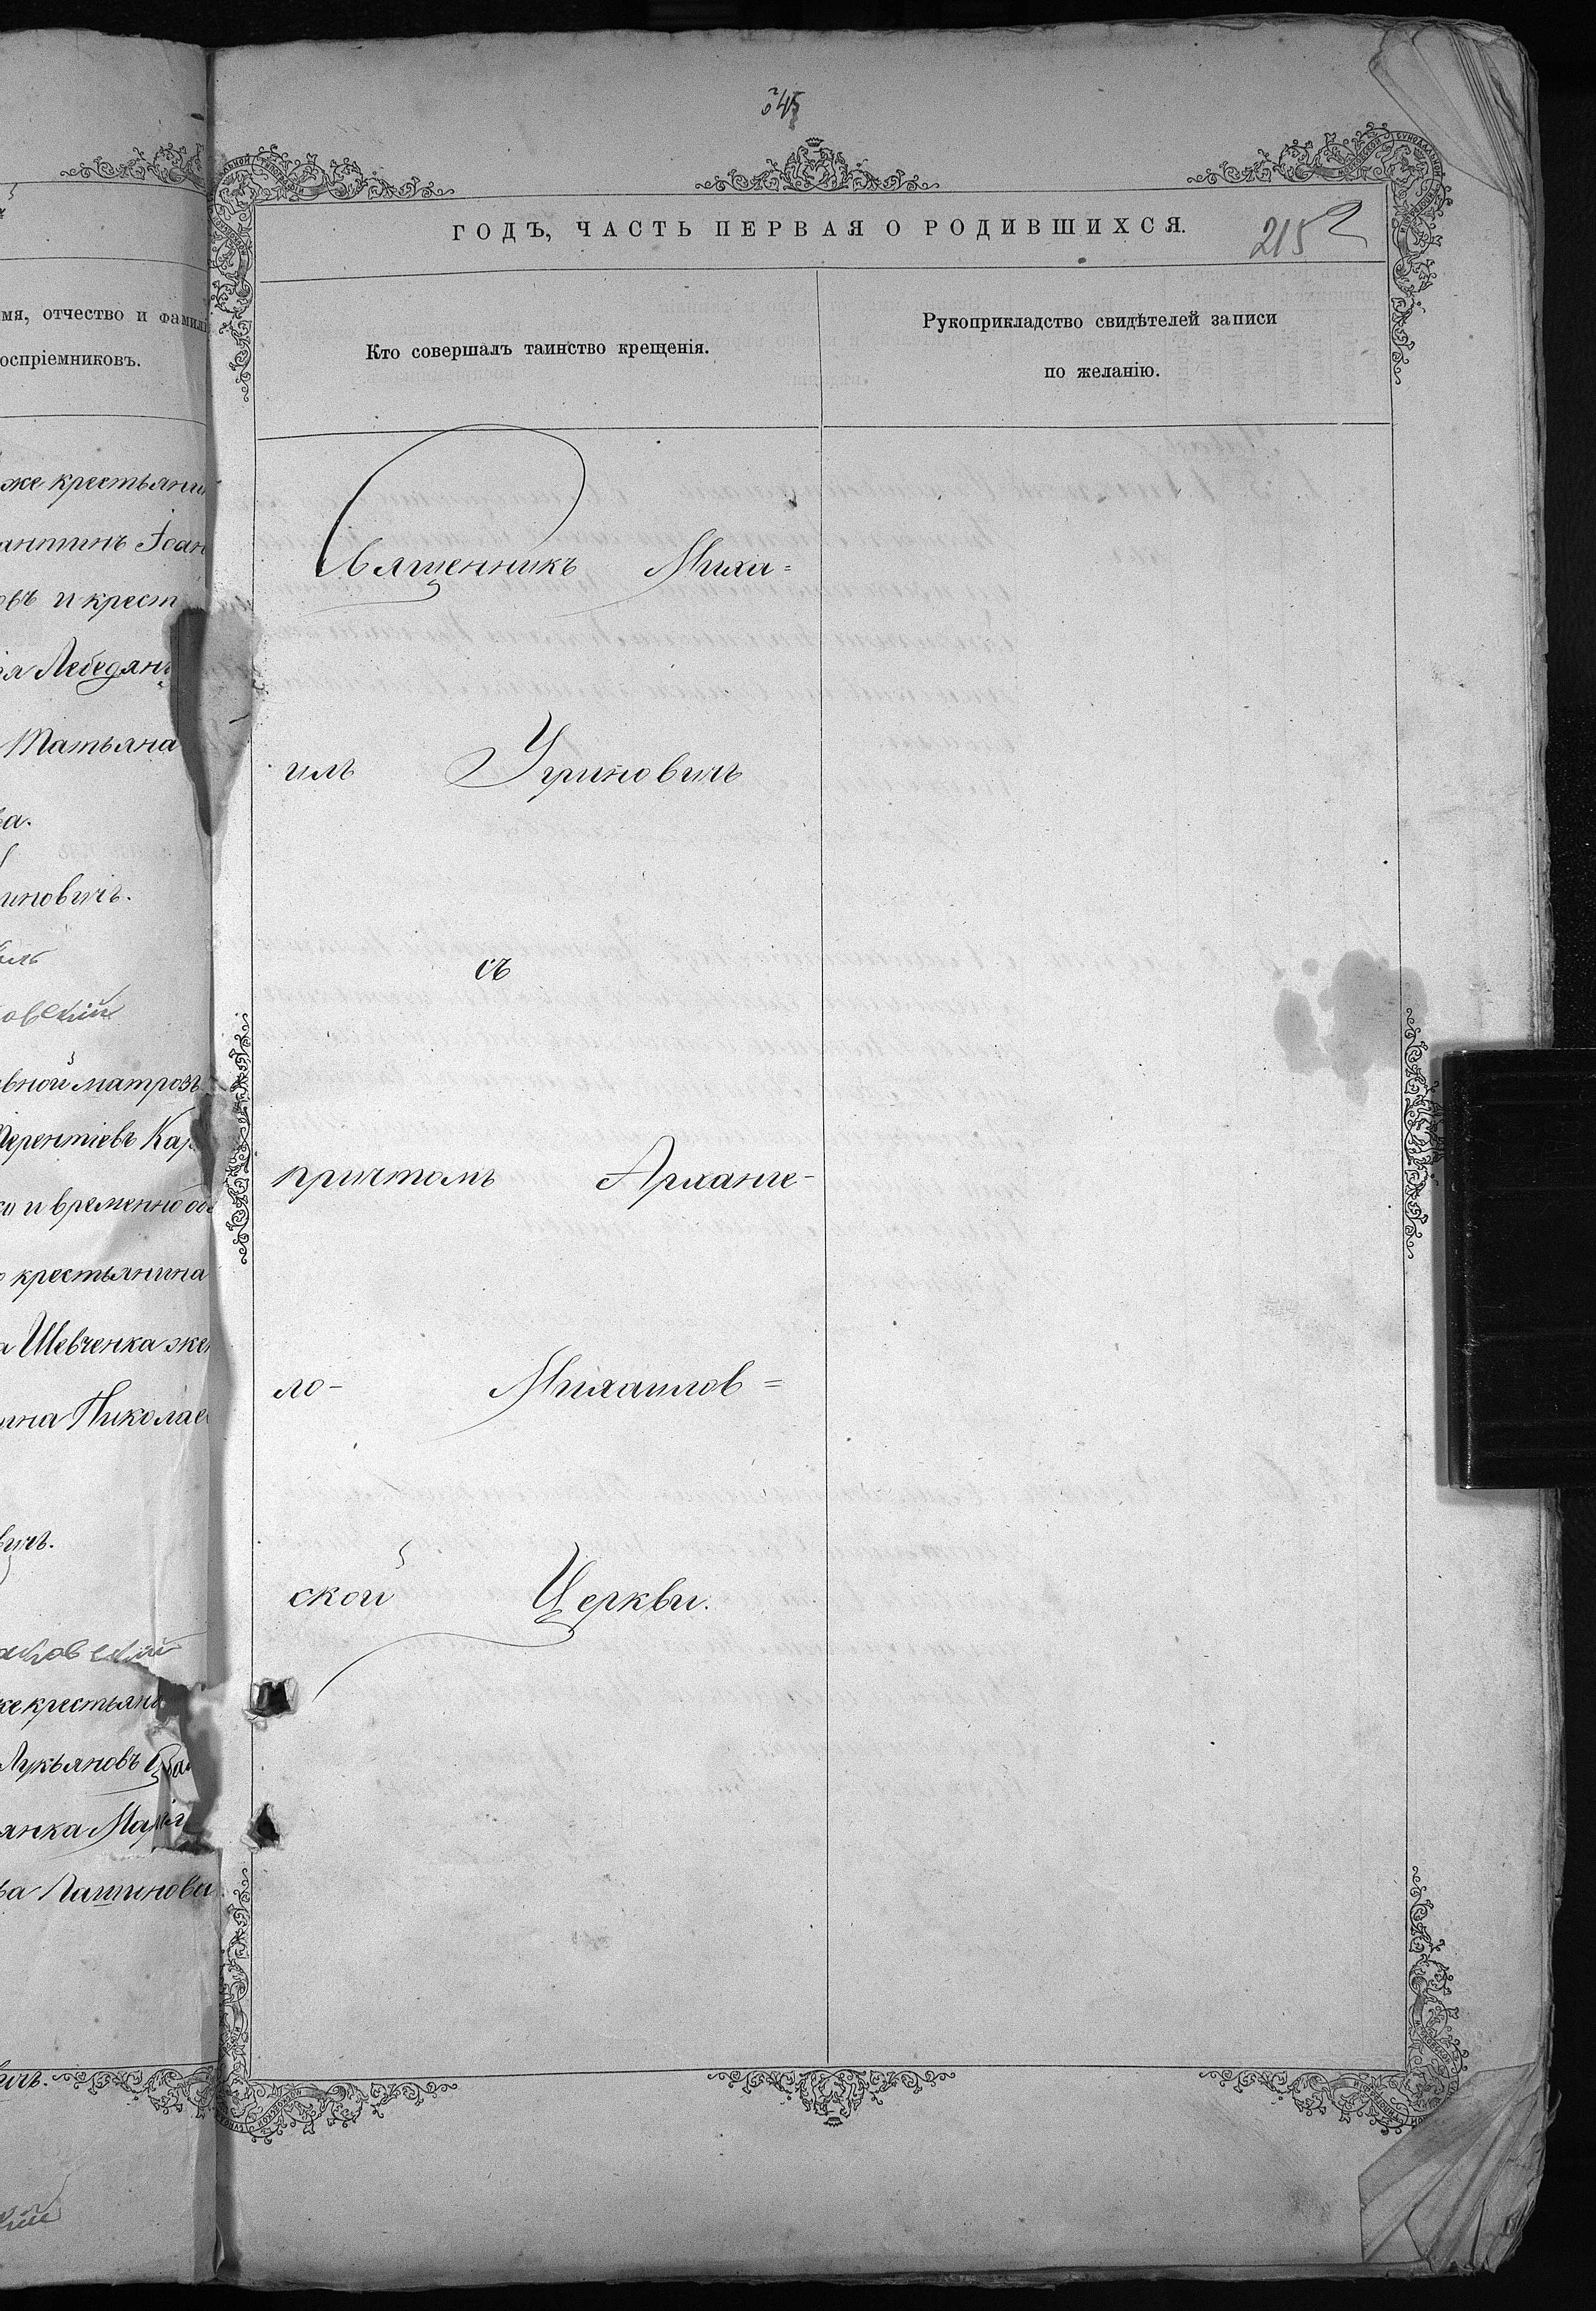 мя, отчество и фамилі
оспріемниковъ.
же крестьянин
антинъ Іоан
овъ и крест
ія Лебедян
Татьяна
ва.
иновичъ.
овскій
Терентіевъ Кар
ко и временно об
о крестьянина
а Шевченка жен
ина Николаев
вичъ.
аковскій
же крестьяни
Лукьяновъ
янка Марія
ва Пашинова
вичъ.
кій
245
ГОДЪ, ЧАСТЬ ПЕРВАЯ О РОДИВШИХСЯ.
215
Кто совершалъ таинство крещенія.
Рукоприкладство свидѣтелей записи
по желанію.
Священникъ Миха=
илъ Угриновичъ
съ
причтомъ Арханге-
ло- Михаилов=
ской Церкви.